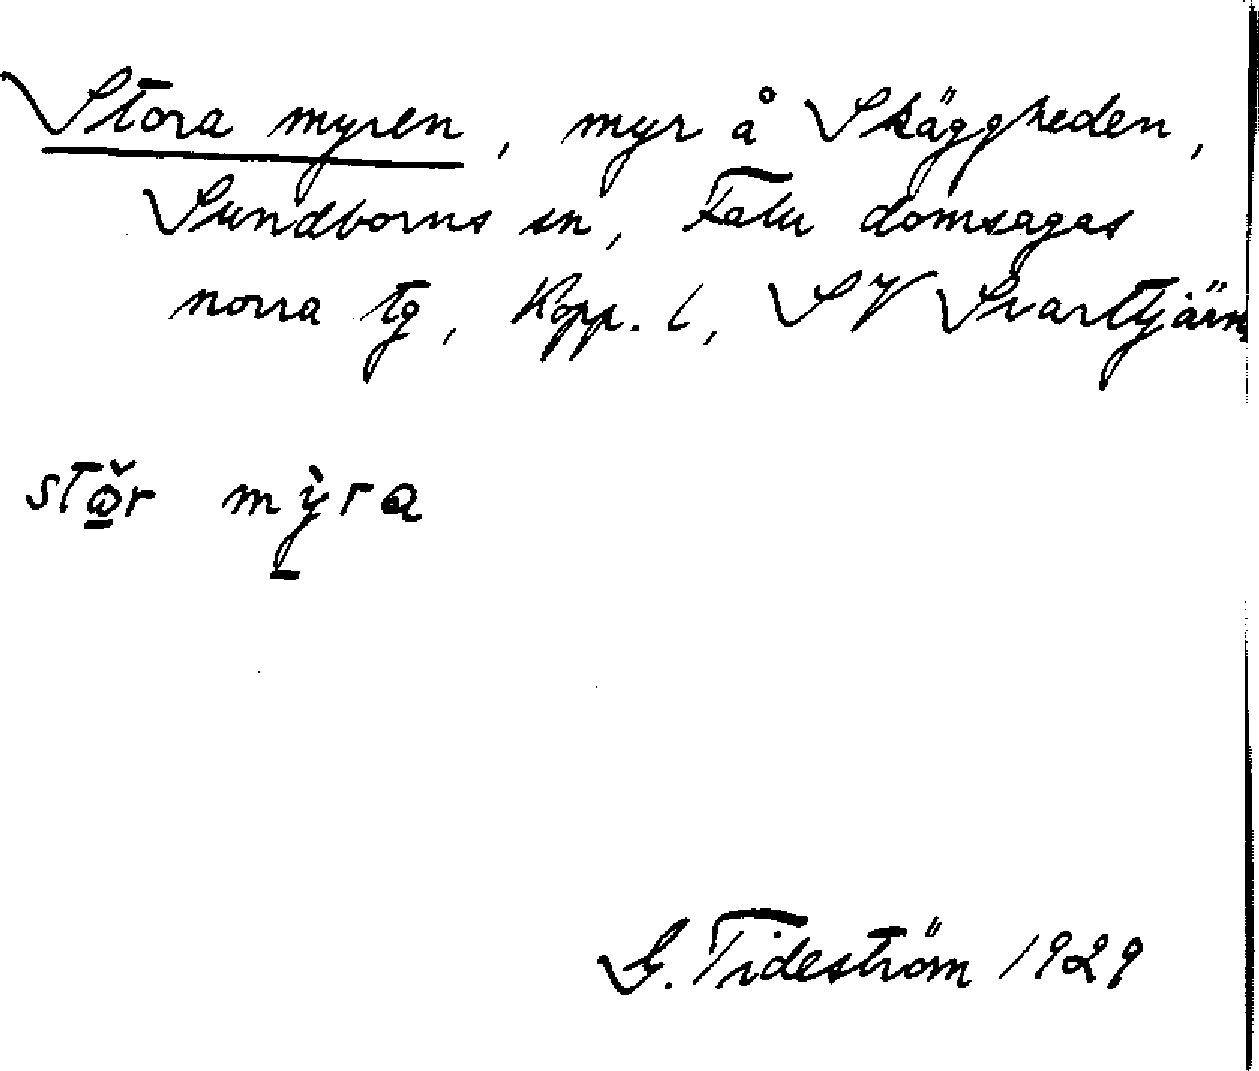 Stora myren, myr å Skäggheden,
Sundborns sn, Falu domsagas
norra tg, Kopp. l, SV Svarttjärn
stω̠̌r mỳ̠ra
G. Tideström 1929